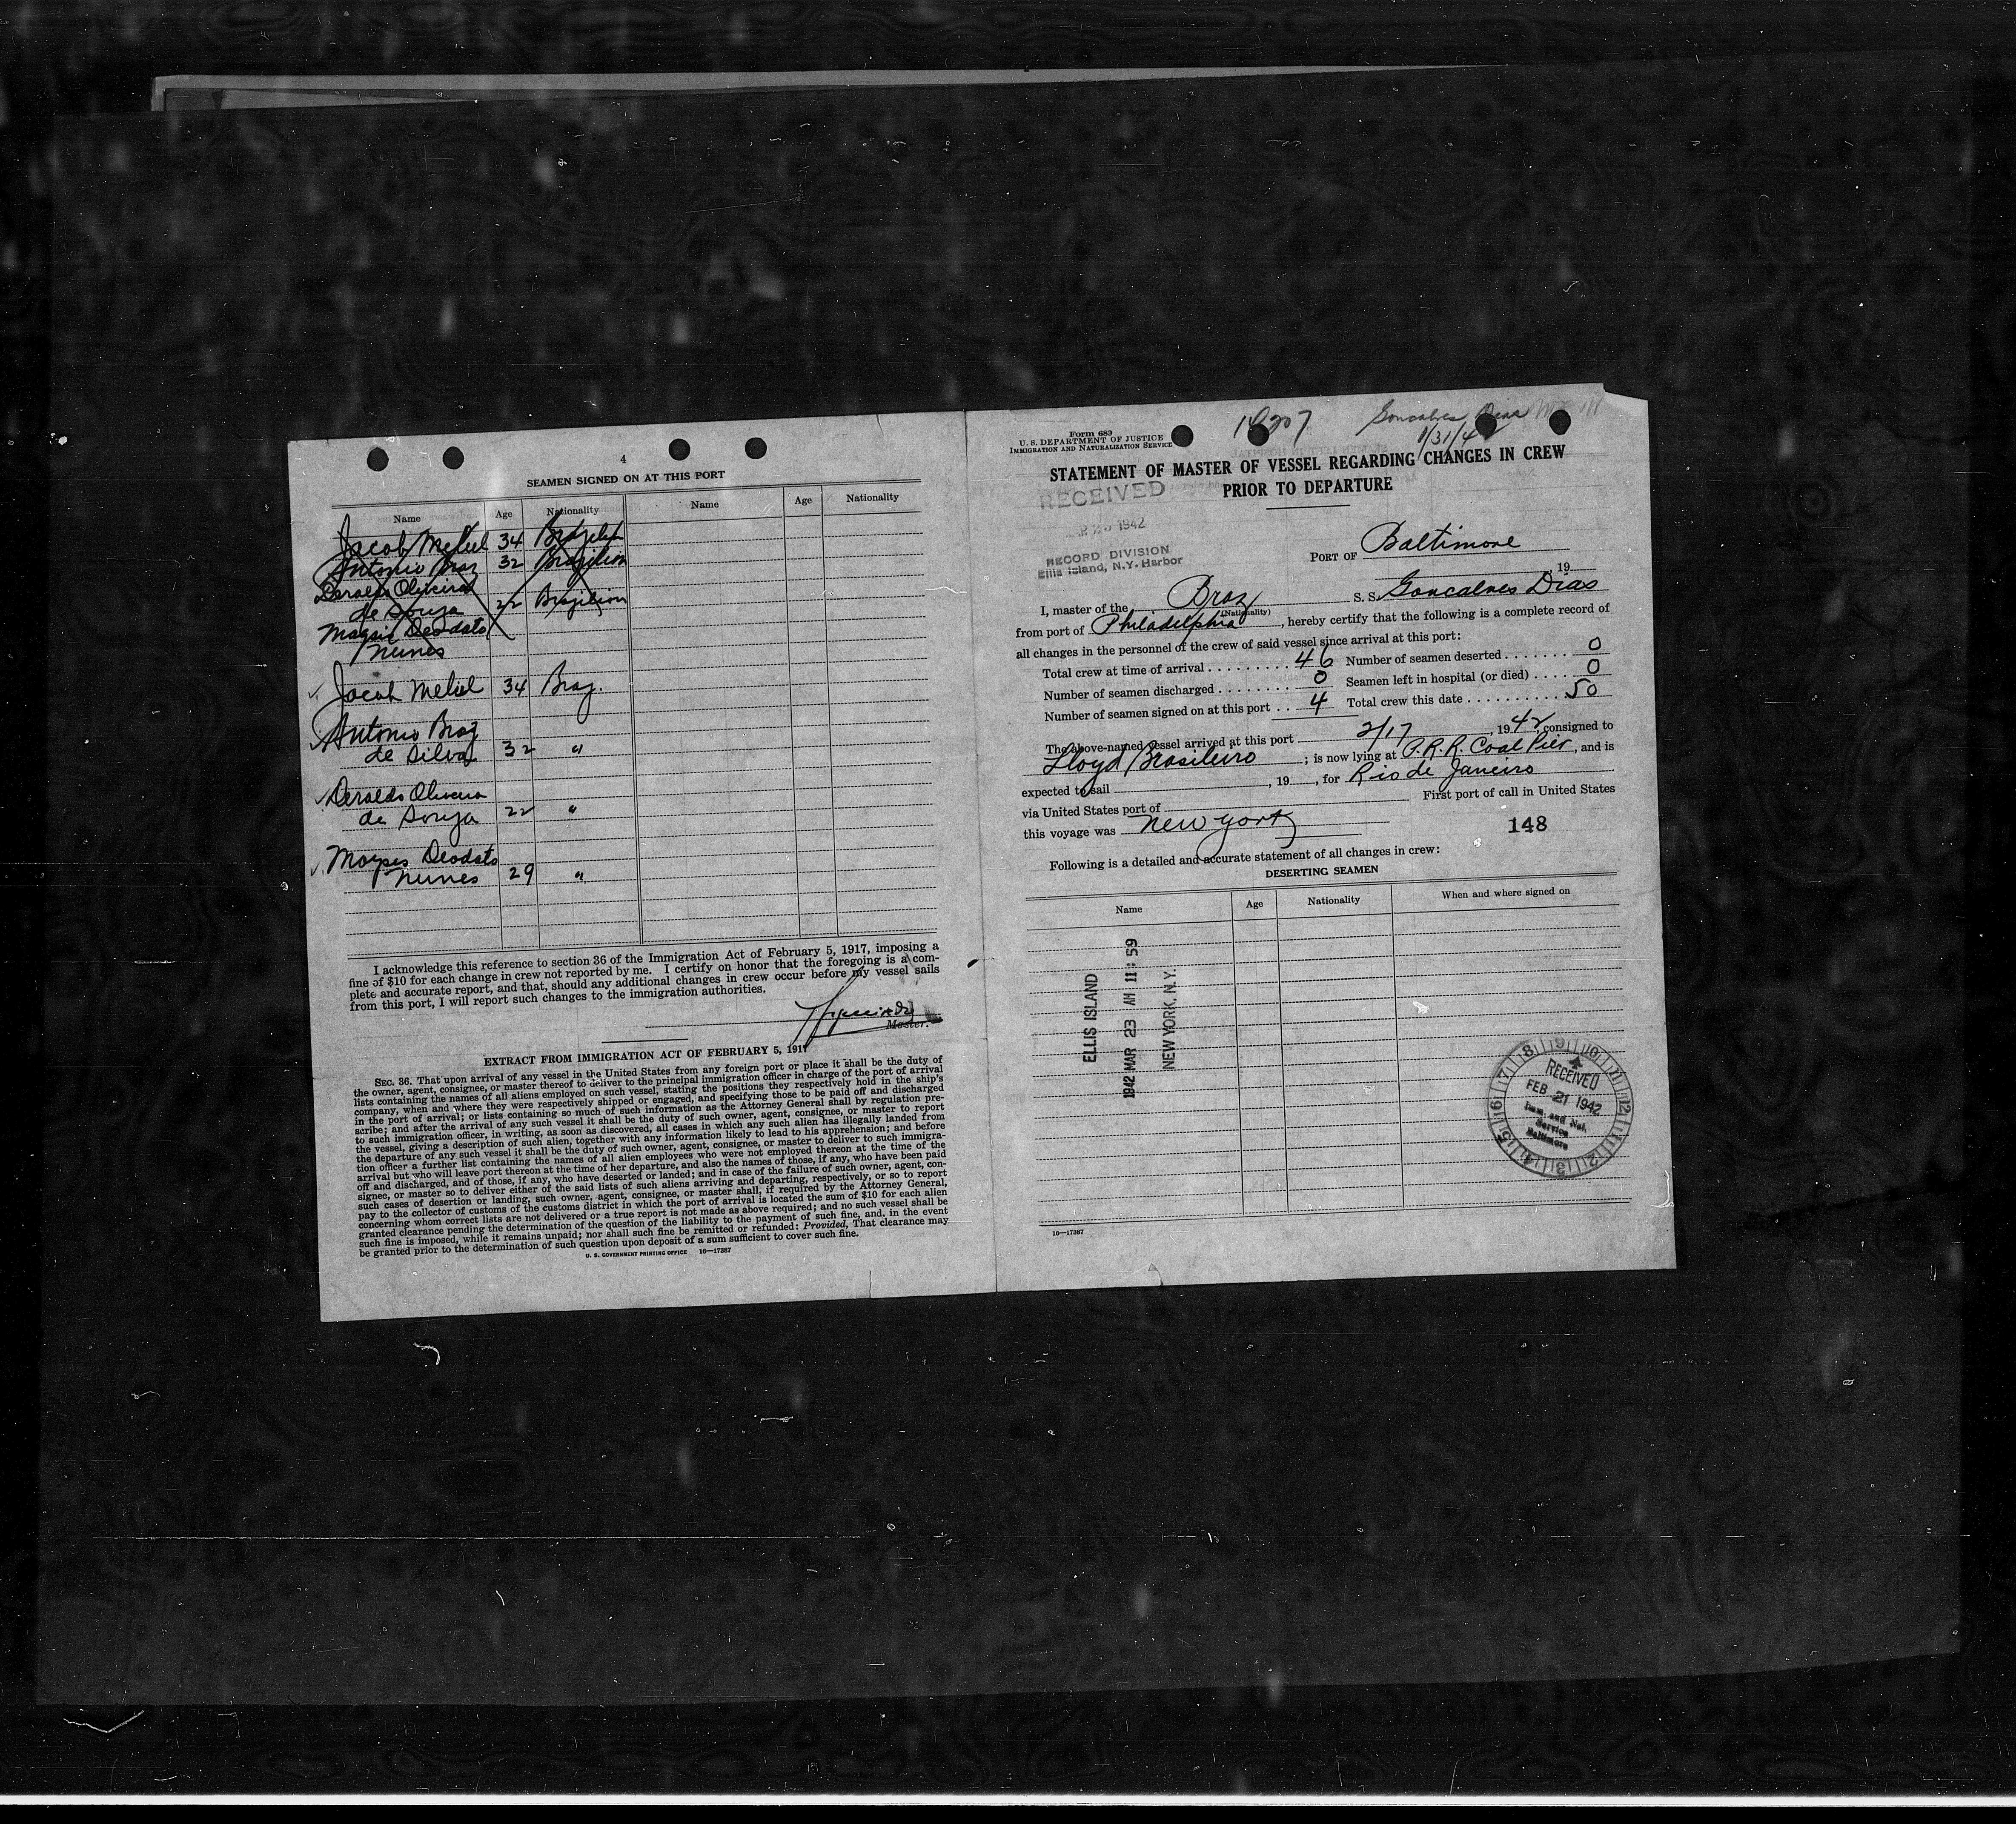 4
SEAMEN SIGNED ON AT THIS PORT
Name Age Nationality Name Age Nationality
Jacob Meliel 34
Antonio Braz 32 Brazilian
Deraldo Oliveira
de Souza 22 Brazilian
Deodato
Nunes
Jacob Meliel 34 Braz.
Antonio Braz
de Silva 32 "
Deraldo Oliveira
de Souza 22 "
Moyses Deodato
Nunes 29 "
I acknowledge this reference to section 36 of the Immigration Act of February 5, 1917, imposing a
fine of $10 for each change in crew not reported by me. I certify on honor that the foregoing is a com-
plete and accurate report, and that, should any additional changes in crew occur before my vessel sails
from this port, I will report such changes to the immigration authorities.
Master.
EXTRACT FROM IMMIGRATION ACT OF FEBRUARY 5, 1917
SEC. 36. That upon arrival of any vessel in the United States from any foreign port or place it shall be the duty of
the owner, agent, consignee, or master thereof to deliver to the principal immigration officer in charge of the port of arrival
lists containing the names of all aliens employed on such vessel, stating the positions they respectively hold in the ship's
company, when and where they were respectively shipped or engaged, and specifying those to be paid off and discharged
in the port of arrival; or lists containing so much of such information as the Attorney General shall by regulation pre-
scribe; and after the arrival of any such vessel it shall be the duty of such owner, agent, consignee, or master to report
to such immigration officer, in writing, as soon as discovered, all cases in which any such alien has illegally landed from
the vessel, giving a description of such alien, together with any information likely to lead to his apprehension; and before
the departure of any such vessel it shall be the duty of such owner, agent, consignee, or master to deliver to such immigra-
tion officer a further list containing the names of all alien employees who were not employed thereon at the time of the
arrival but who will leave port thereon at the time of her departure, and also the names of those, if any, who have been paid
off and discharged, and of those, if any, who have deserted or landed; and in case of the failure of such owner, agent, con-
signee, or master so to deliver either of the said lists of such aliens arriving and departing, respectively, or so to report
such cases of desertion or landing, such owner, agent, consignee, or master shall, if required by the Attorney General,
pay to the collector of customs of the customs district in which the port of arrival is located the sum of $10 for each alien
concerning whom correct lists are not delivered or a true report is not made as above required; and no such vessel shall be
granted clearance pending the determination of the question of the liability to the payment of such fine, and, in the event
such fine is imposed, while it remains unpaid; nor shall such fine be remitted or refunded: Provided, That clearance may
be granted prior to the determination of such question upon deposit of a sum sufficient to cover such fine.
U. S. GOVERNMENT PRINTING OFFICE 16—17387
Form 689
U. S. DEPARTMENT OF JUSTICE
IMMIGRATION AND NATURALIZATION SERVICE
Goncalves Dias
STATEMENT OF MASTER OF VESSEL REGARDING CHANGES IN CREW
PRIOR TO DEPARTURE
RECEIVED
1942
RECORD DIVISION
Ellis Island, N.Y. Harbor
PORT OF Baltimore
, 19
I, master of the Braz S. S. Goncalves Dias
(Nationality)
from port of Philadelphia, hereby certify that the following is a complete record of
all changes in the personnel of the crew of said vessel since arrival at this port:
Total crew at time of arrival 46 Number of seamen deserted 0
Number of seamen discharged 0 Seamen left in hospital (or died) 0
Number of seamen signed on at this port 4 Total crew this date 50
The above-named vessel arrived at this port 2/17, 1942, consigned to
Lloyd Brasileiro; is now lying at P.R.R. Coal Pier, and is
expected to sail , 19 , for Rio de Janeiro
via United States port of First port of call in United States
this voyage was New York
148
Following is a detailed and accurate statement of all changes in crew:
DESERTING SEAMEN
Name Age Nationality When and where signed on
ELLIS ISLAND
1942 MAR 23 AM 11:59
NEW YORK, N.Y.
RECEIVED
FEB 21 1942
Imm. and Nat.
Service
Baltimore
16—17387